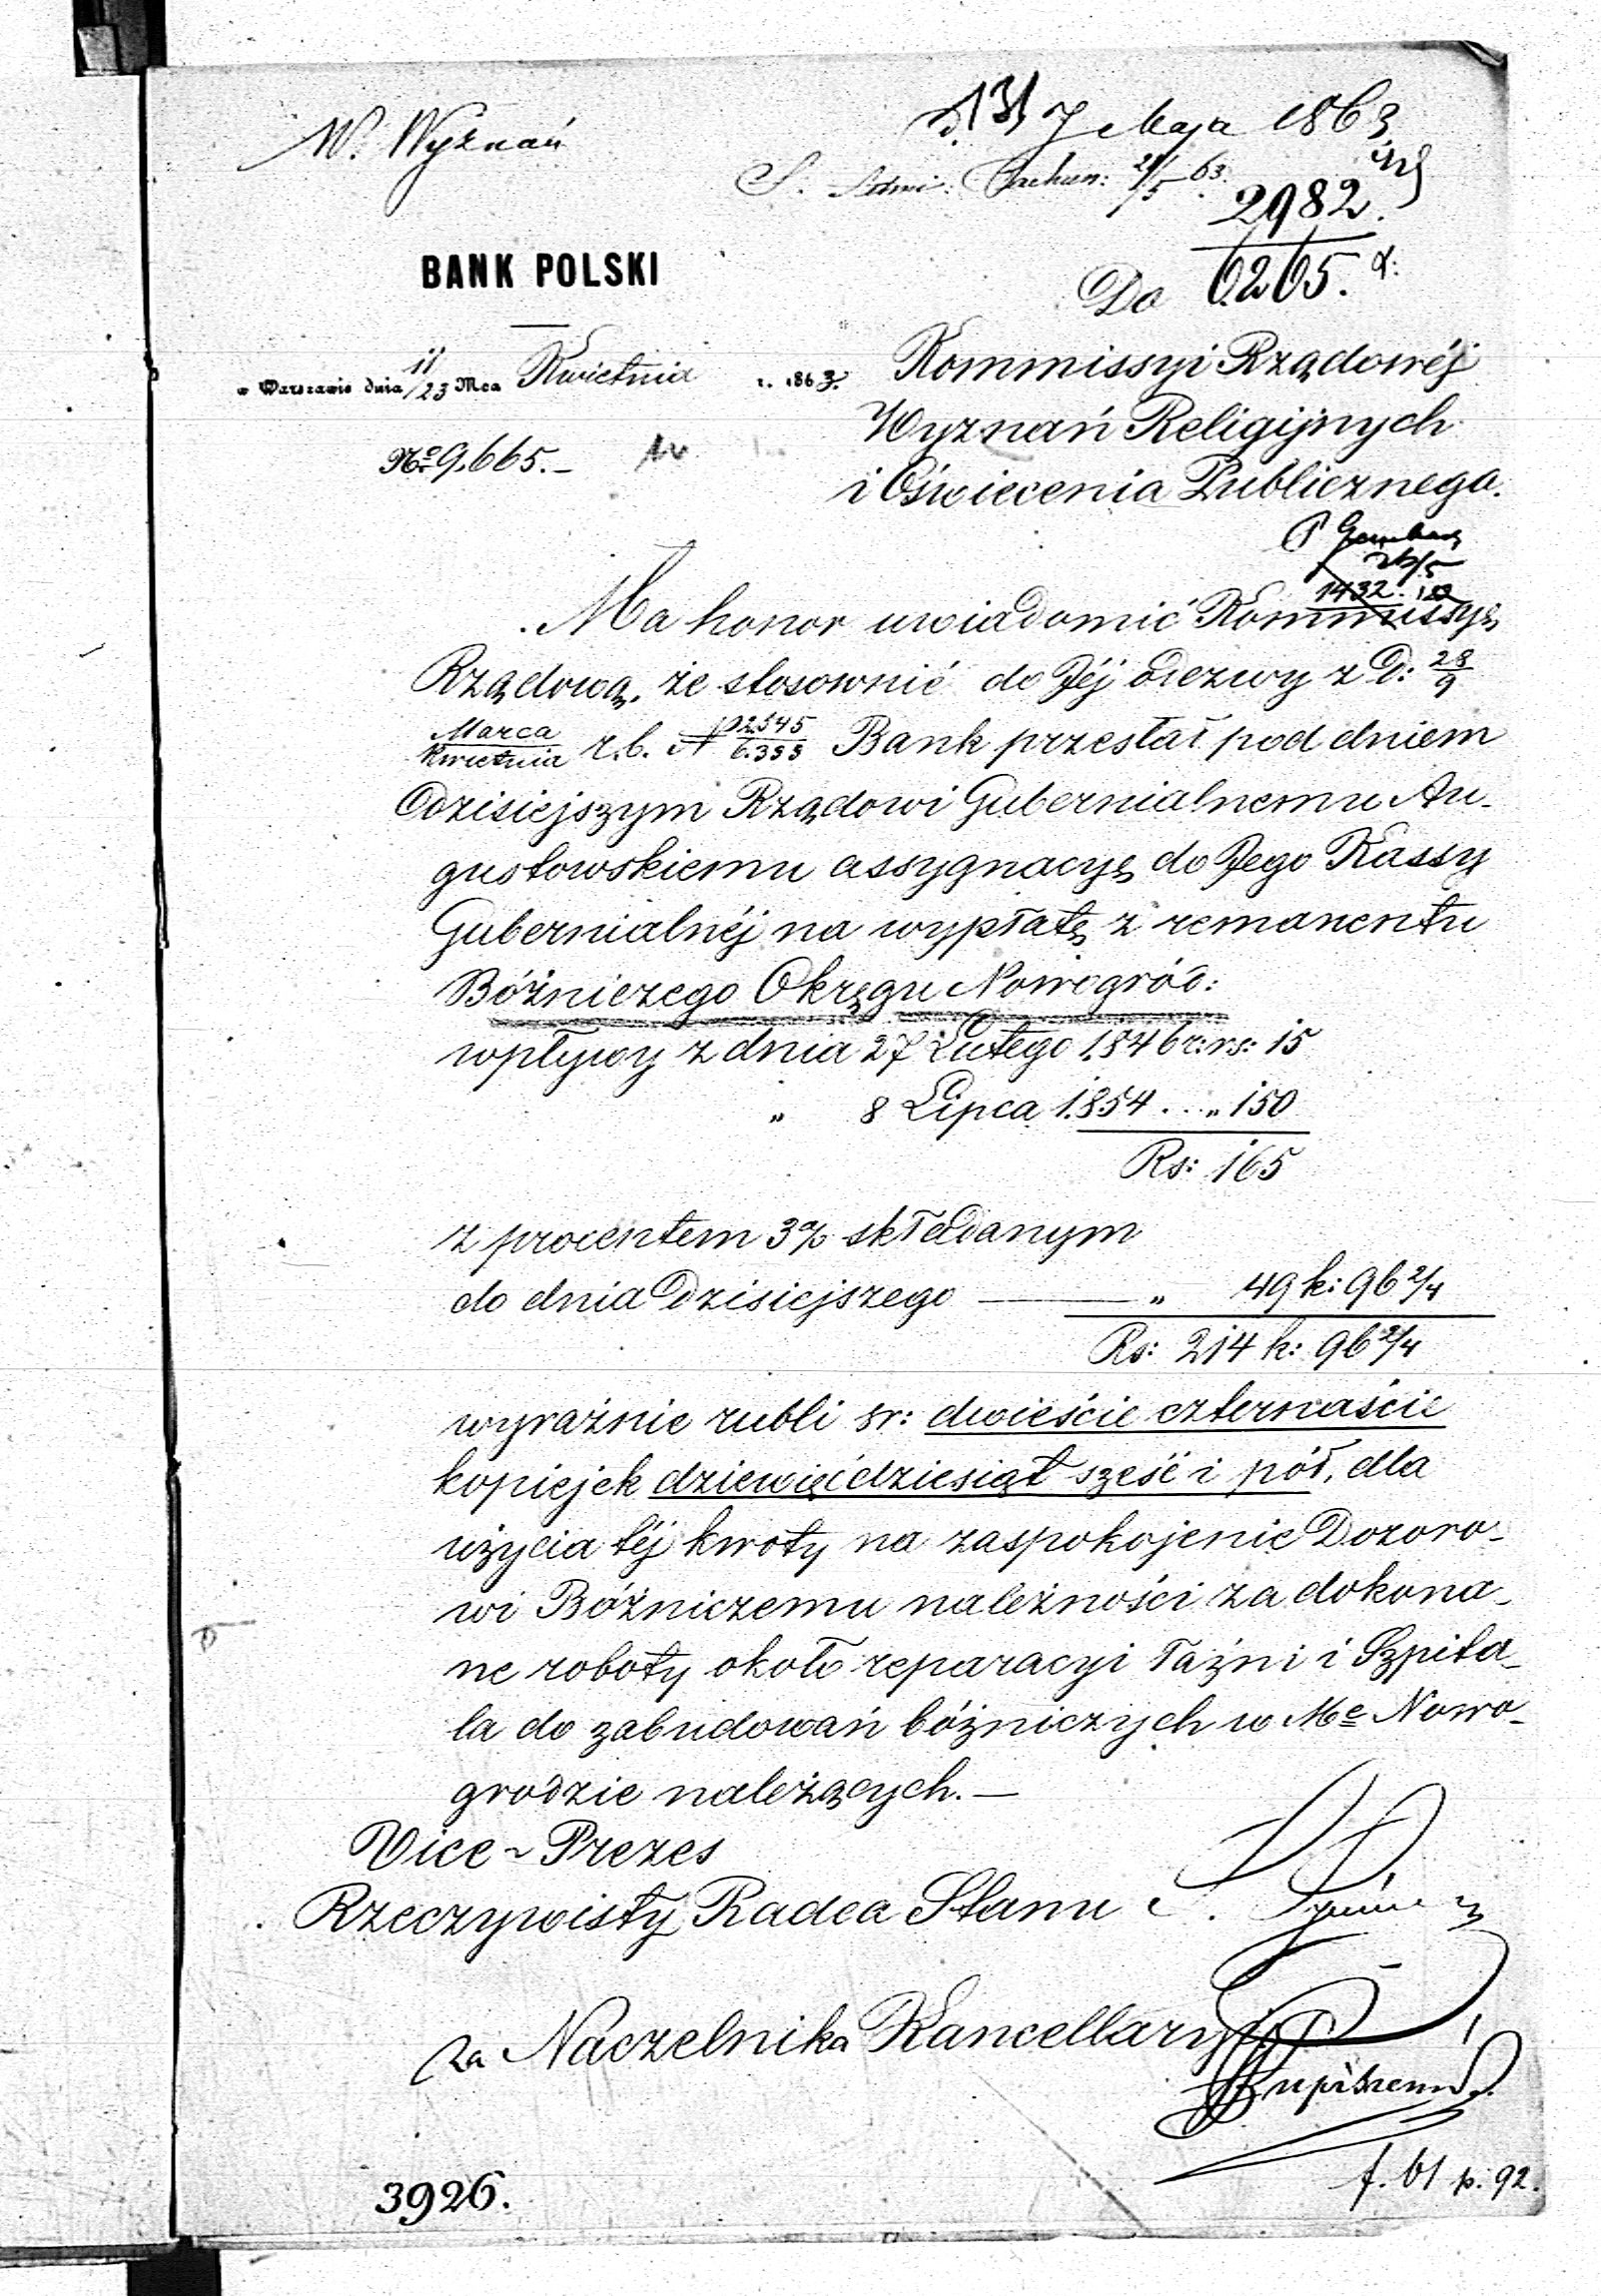 W. Wyznań
7 Maja 1863
2982.
6265.
BANK POLSKI
Do
w Warszawie dnia 11/23 Mca Kwietnia r. 1863.
Kommissyi Rządowéj
Wyznań Religijnych
№ 9,665.–
i Oświecenia Publicznego.
1432.
Ma honor uwiadomić Kommissyę
Rządową, że stosownie do Jéj odezwy z D: 28/9
Marca/Kwietnia r.b. № 2545/6.355 Bank przesłał pod dniem
dzisiejszym Rządowi Gubernialnemu Au-
gustowskiemu assygnacyę do Jego Kassy
Gubernialnéj na wypłatę z remanentu
Bóżniczego Okręgu Nowogród:
wpływy z dnia 27 Lutego 1846 r: rs: 15
„ 8 Lipca 1854 . . „ 150
Rs: 165
z procentem 3% składanym
do dnia dzisiejszego — „ 49 k: 96 2/4
Rs: 214 k: 96 2/4
wyraźnie rubli sr: dwieście czternaście
kopiejek dziewięćdziesiąt sześć i pół, dla
użycia téj kwoty na zaspokojenie Dozoro-
wi Bóżniczemu należności za dokona-
ne roboty około reparacyi łaźni i Szpita-
la do zabudowań bóżniczych w Mc Nowo-
grodzie należących.—
Vice-Prezes
Rzeczywisty Radca Stanu
za Naczelnika Kancellaryi
f. 61 p. 92.
3926.